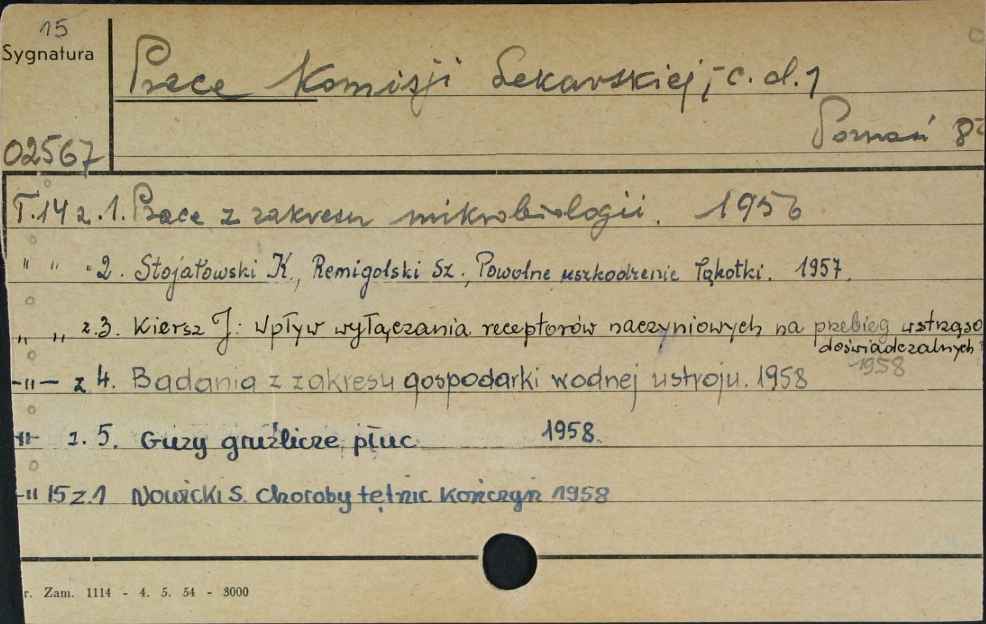 15
Sygnatura
Prace Komisji Lekarskiej, - c. d. 1
Poznań 8°
02567
T.14 z.1. Prace z zakresu mikrobiologii. 1956
" " "2. Stojałowski K., Remigolski Sz. Powolne uszkodzenie łąkotki. 1957.
" " z.3. Kiersz J: Wpływ wyłączania receptorów naczyniowych na przebieg wstrząso
doświadczalnych
1958
-"- z 4. Badania z zakresu gospodarki wodnej ustroju. 1958
-"- z. 5. Guzy gruźlicze płuc 1958.
-" 15 z.1 Nowicki S. Choroby tętnic kończyn 1958
r. Zam. 1114 - 4. 5. 54 - 3000